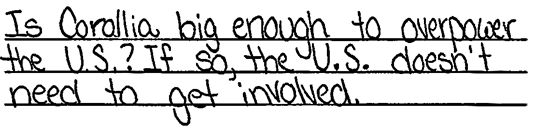 Is Corollia big enough to overpower
the U.S.? If so, the U.S. doesn't
need to get involved.